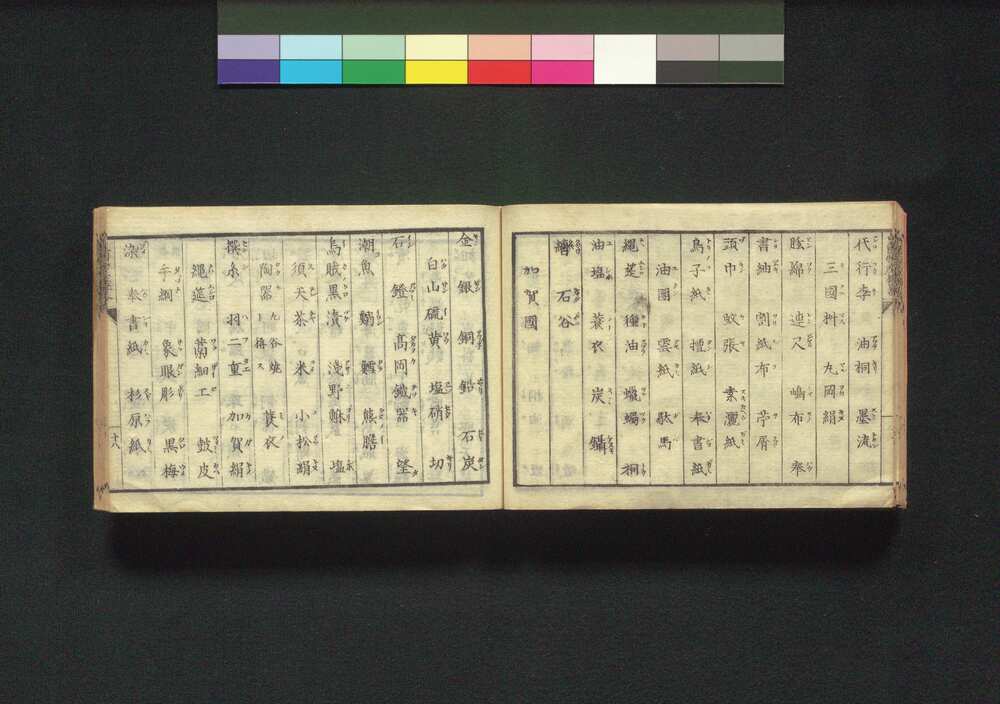 代行李 油桐 墨流
三國艸 丸岡絹
連尺 嶋布 奉
書紬 割紙布 苧屑
頭巾 蚊張 素麺紙
鳥子紙 檀紙 奉書紙
油團 雲紙 駄馬
縄莚 種油 蠟燭 桐
油塩 蓑衣 炭
石谷
加賀國
金 銀 銅 鉛 石炭
白山硫黄 塩硝 切
石 鐙 高岡鐵器 望
潮魚 鰯 鱈 熊膽
烏賊黒漬 淺野 塩
須天茶 米 小松絹
陶器 九谷焼 蓑衣
撰糸 羽二重 加賀絹
縄莚 藺細工 鼓皮
手綱 象眼彫 黒梅
染 奉書紙 杉原紙
十八